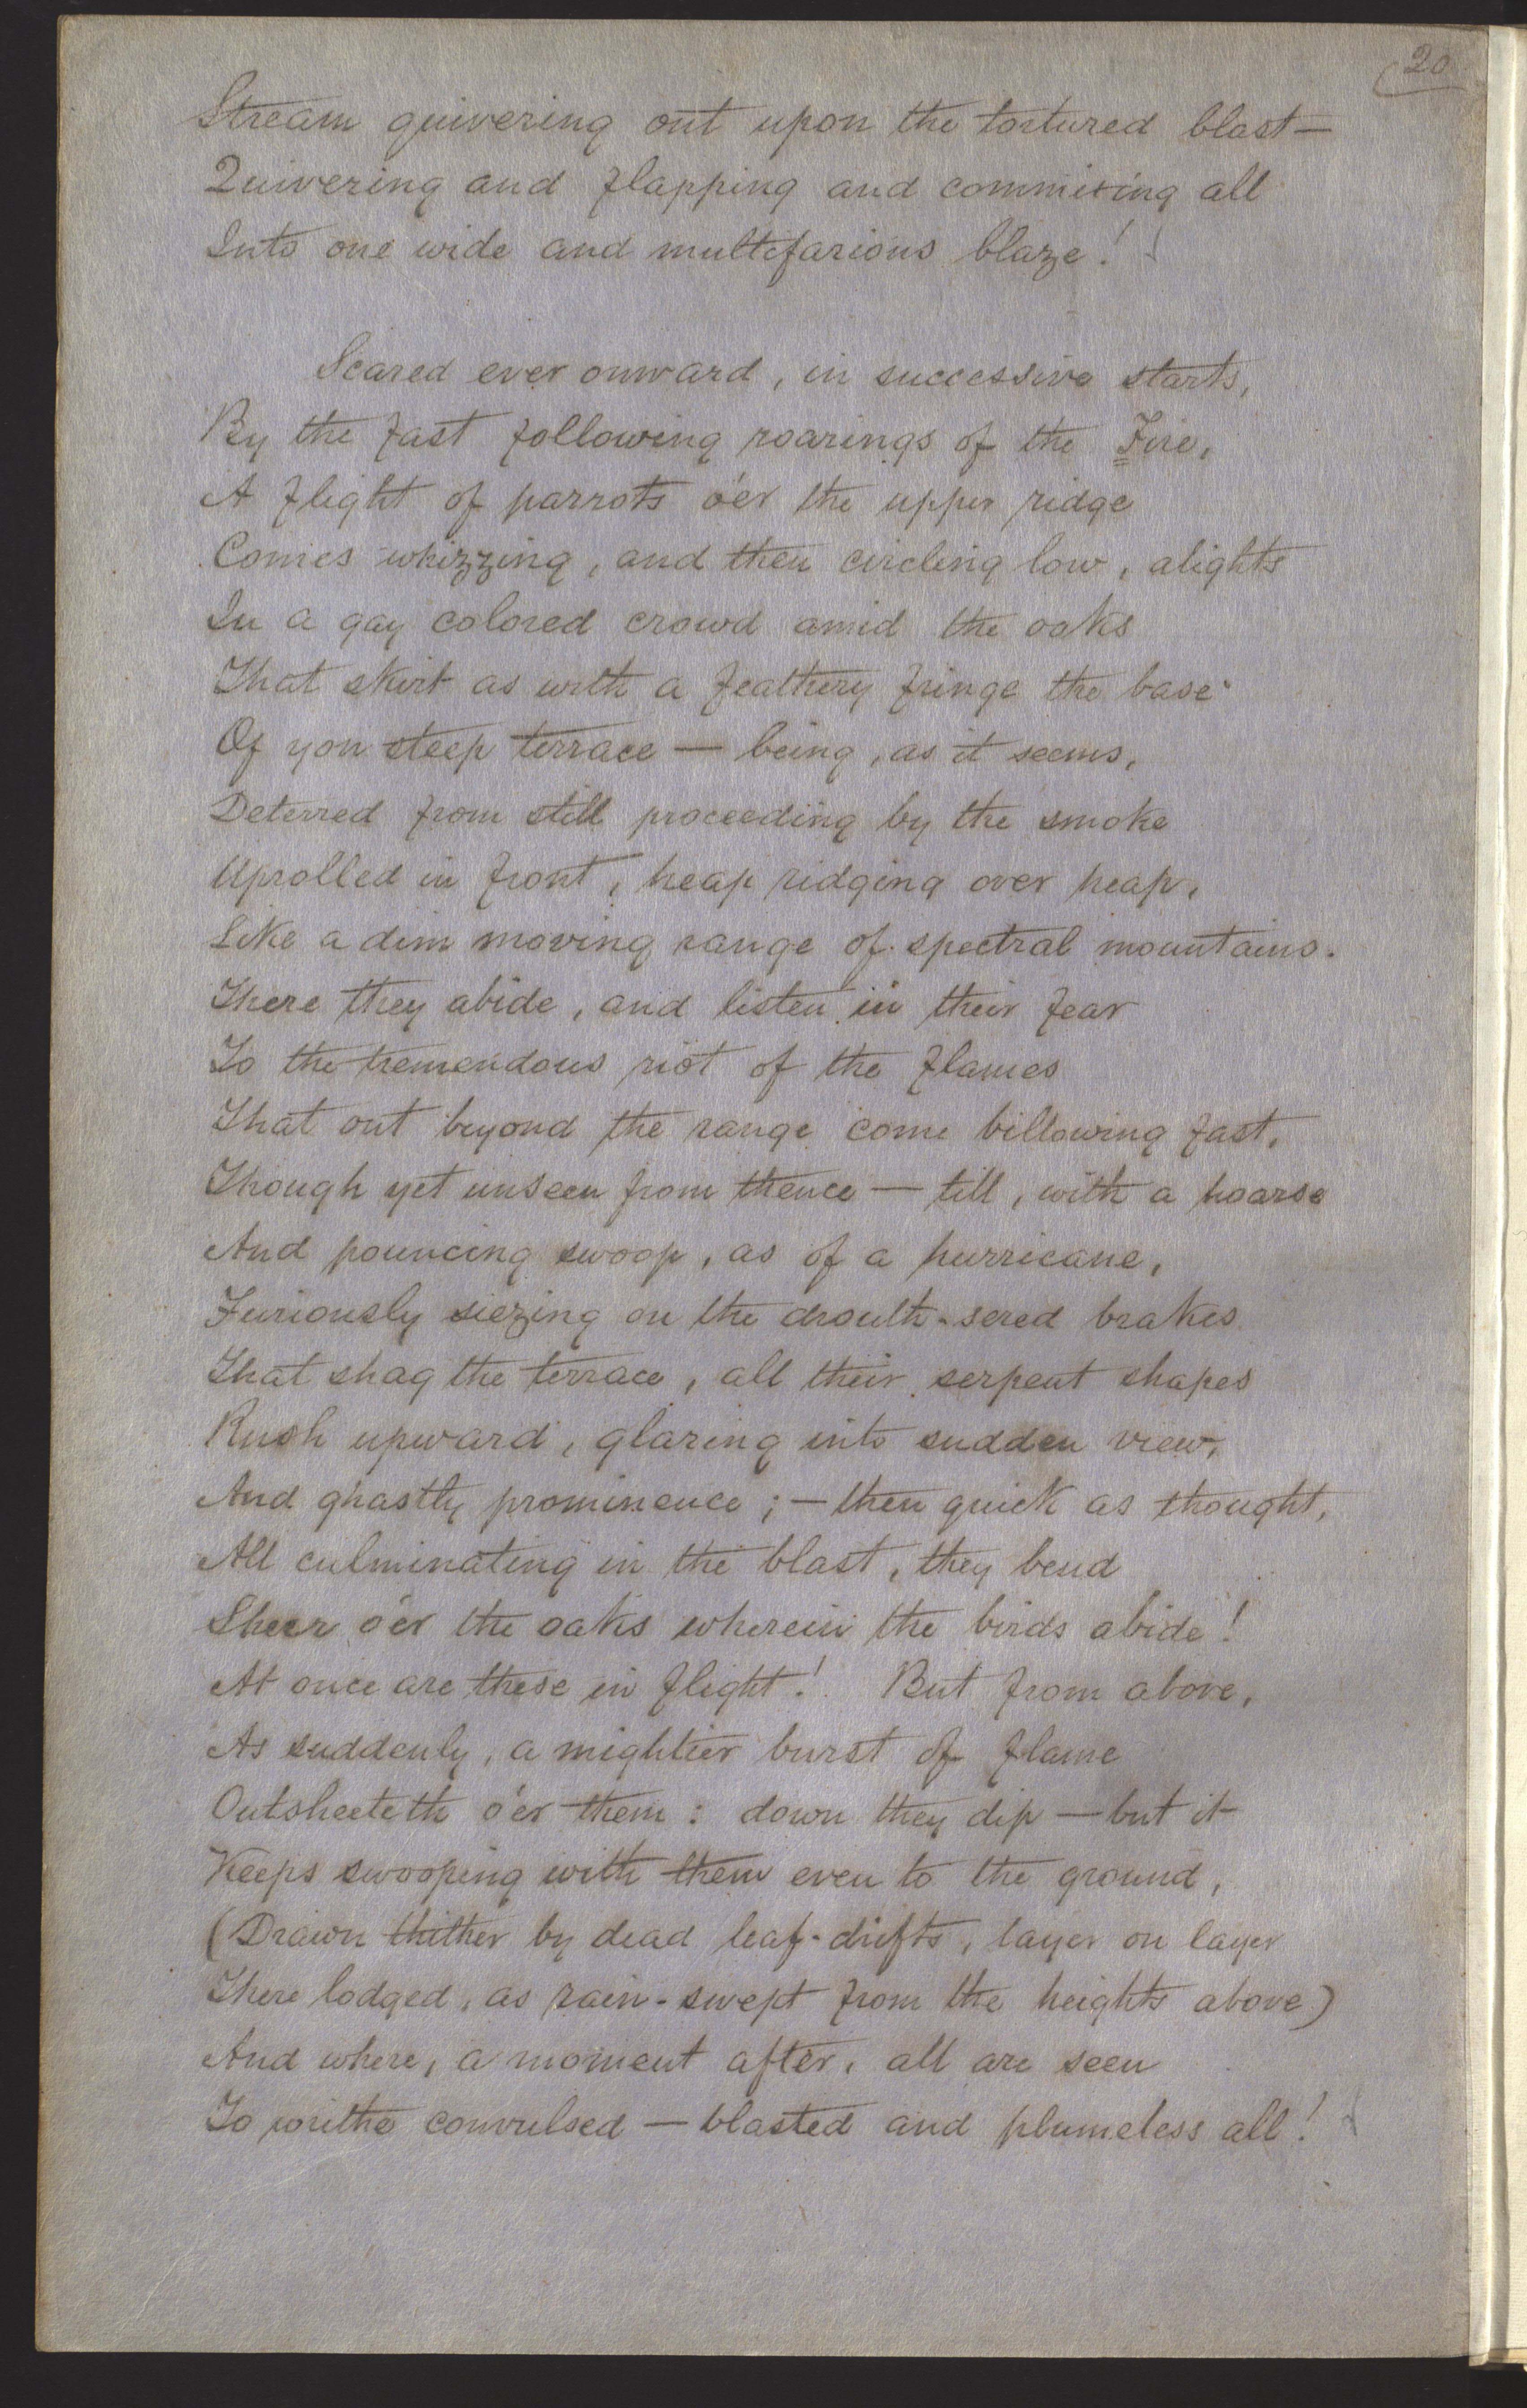 20
Stream quivering out upon the tortured blast —
Quivering and flapping and commixing all
Into one wide and multifarious blaze!
Scared ever onward, in successive starts,
By the fast following roarings of the Fire,
A flight of parrots o'er the upper ridge
Comes whizzing, and then circling low, alights
In a gay colored crowd amid the oaks
That skirt as with a feathery fringe the base
Of yon steep terrace — being, as it seems,
Deterred from still proceeding by the smoke
Uprolled in front, heap ridging over heap,
Like a dim moving range of spectral mountains.
There they abide, and listen in their fear
To the tremendous riot of the flames
That out beyond the range come billowing fast,
Though yet unseen from thence — till, with a hoarse
And pouncing swoop, as of a hurricane,
Furiously siezing on the drouth-sered brakes
That shag the terrace, all their serpent shapes
Rush upward, glaring into sudden view,
And ghastly prominence; — then quick as thought,
All culminating in the blast, they bend
Sheer o'er the oaks wherein the birds abide!
At once are these in flight! But from above,
As suddenly, a mightier burst of flame
Outsheeteth o'er them: down they dip — but it
Keeps swooping with them even to the ground,
(Drawn thither by dead leaf-drifts, layer on layer
There lodged, as rain-swept from the heights above)
And where, a moment after, all are seen
To writhe convulsed — blasted and plumeless all!